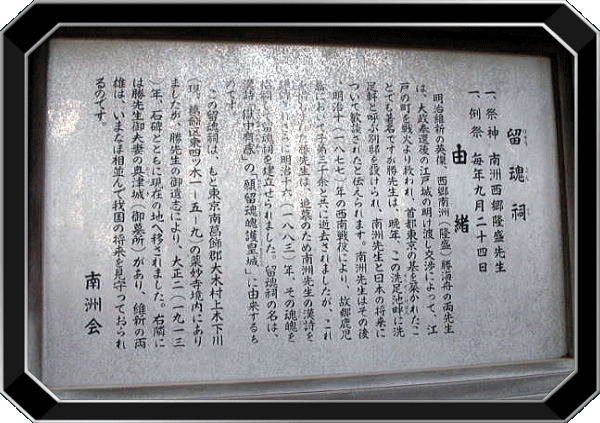 留魂祠
由緒
一、祭神 南洲西郷隆盛先生
一、例祭 毎年九月二十四日
明治維新の英傑、西郷南洲（隆盛）勝海舟の両先生
は、大政奉還後の江戸城の明け渡し交渉によって、江
戸の町を戦火より救われ、首都東京の基を築かれたこ
とでも著名ですが勝先生は、晩年、この洗足池畔に洗
足軒と呼ぶ別邸を設けられ、南洲先生と日本の将来に
ついて歓談されたと伝えられます。南洲先生はその後
明治十（一八七七）年の西南戦役により、故郷鹿児
島において子弟三千余と共に逝去されましたが、これ
勝先生は、追慕のため南洲先生の漢詩を
さらに明治十六（一八八三）年、その魂魄を
留魂祠を建立せられました。留魂祠の名は、
漢詩「獄中有感」の「願留魂魄護皇城」に由来するも
のです。
この留魂祠は、もと東京南葛飾郡大木村上木下川
（現、葛飾区東四ツ木一－五－九）の薬妙寺境内にあり
ましたが、勝先生の御遺志により、大正二（一九一三
）年、石碑とともに現在の地へ移されました。右隣に
は勝先生御夫妻の奥津城（御墓所）があり、維新の両
雄は、いまなお相並んで我国の将来を見守っておられ
るのです。
南洲会